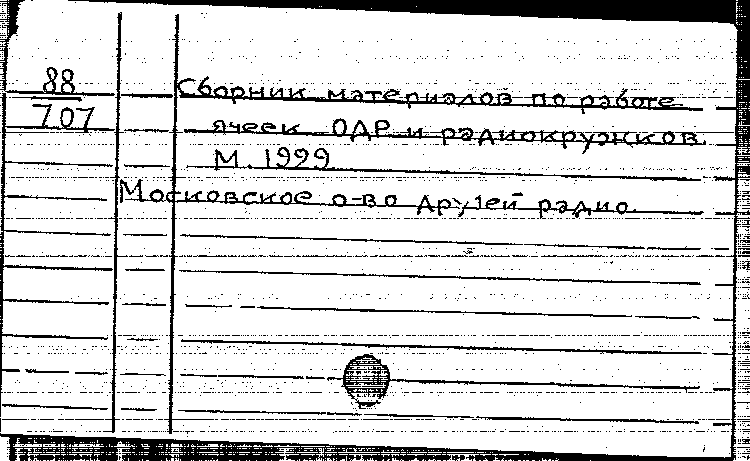 88
707
Сборник материалов по работе
ячеек ОДР и радиокружков.
М. 1999
Московское о-во друзей радио.